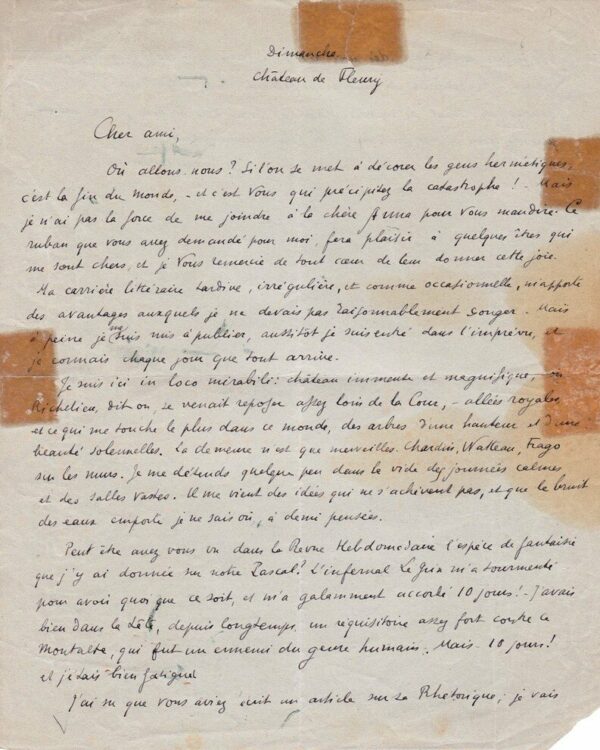 Dimanche
Château de Fleury
Cher ami,
Où allons nous? Si l'on se met à décorer les gens hermétiques,
c'est la fin du monde, - et c'est Vous qui précipitez la catastrophe! Mais
je n'ai pas la force de me joindre à la chère Anna pour vous maudire. Ce
ruban que vous avez demandé pour moi, fera plaisir à quelques êtres qui
me sont chers, et je Vous remercie de tout cœur de leur donner cette joie.
Ma carrière littéraire tardive, irrégulière, et comme occasionnelle, m'apporte
des avantages auxquels je ne devais pas raisonnablement songer. Mais
à peine je me suis mis à publier, aussitôt je suis entré dans l'imprévu, et
je connais chaque jour que tout arrive.
Je suis ici in loco mirabili: château immense et magnifique, - où
Richelieu, dit on, se venait reposer assez loin de la Cour, - allées royales
et ce qui me touche le plus dans ce monde, des arbres d'une hauteur et d'une
beauté solennelles. La demeure n'est que merveilles. Chardin, Watteau, Frago
sur les murs. Je me détends quelque peu dans le vide des journées calmes
et des salles vastes. Il me vient des idées qui ne s'achèvent pas, et que le bruit
des eaux emporte je ne sais où, à demi pensées.
Peut être avez vous vu dans la Revue Hebdomadaire l'espèce de fantaisie
que j'y ai donnée sur notre Pascal? L'infernal Le Grix m'a tourmenté
pour avoir quoi que ce soit, et m'a galamment accordé 10 jours! - J'avais
bien dans la tête, depuis longtemps, un réquisitoire assez fort contre ce
Montalte, qui fut un ennemi du genre humain. Mais 10 jours!
et j'étais bien fatigué
J'ai su que vous aviez écrit un article sur la Rhétorique; je vais